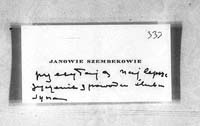 332
JANOWIE SZEMBEKOWIE
przesyłają najlepsze
życzenia z powodu ślubu
syna